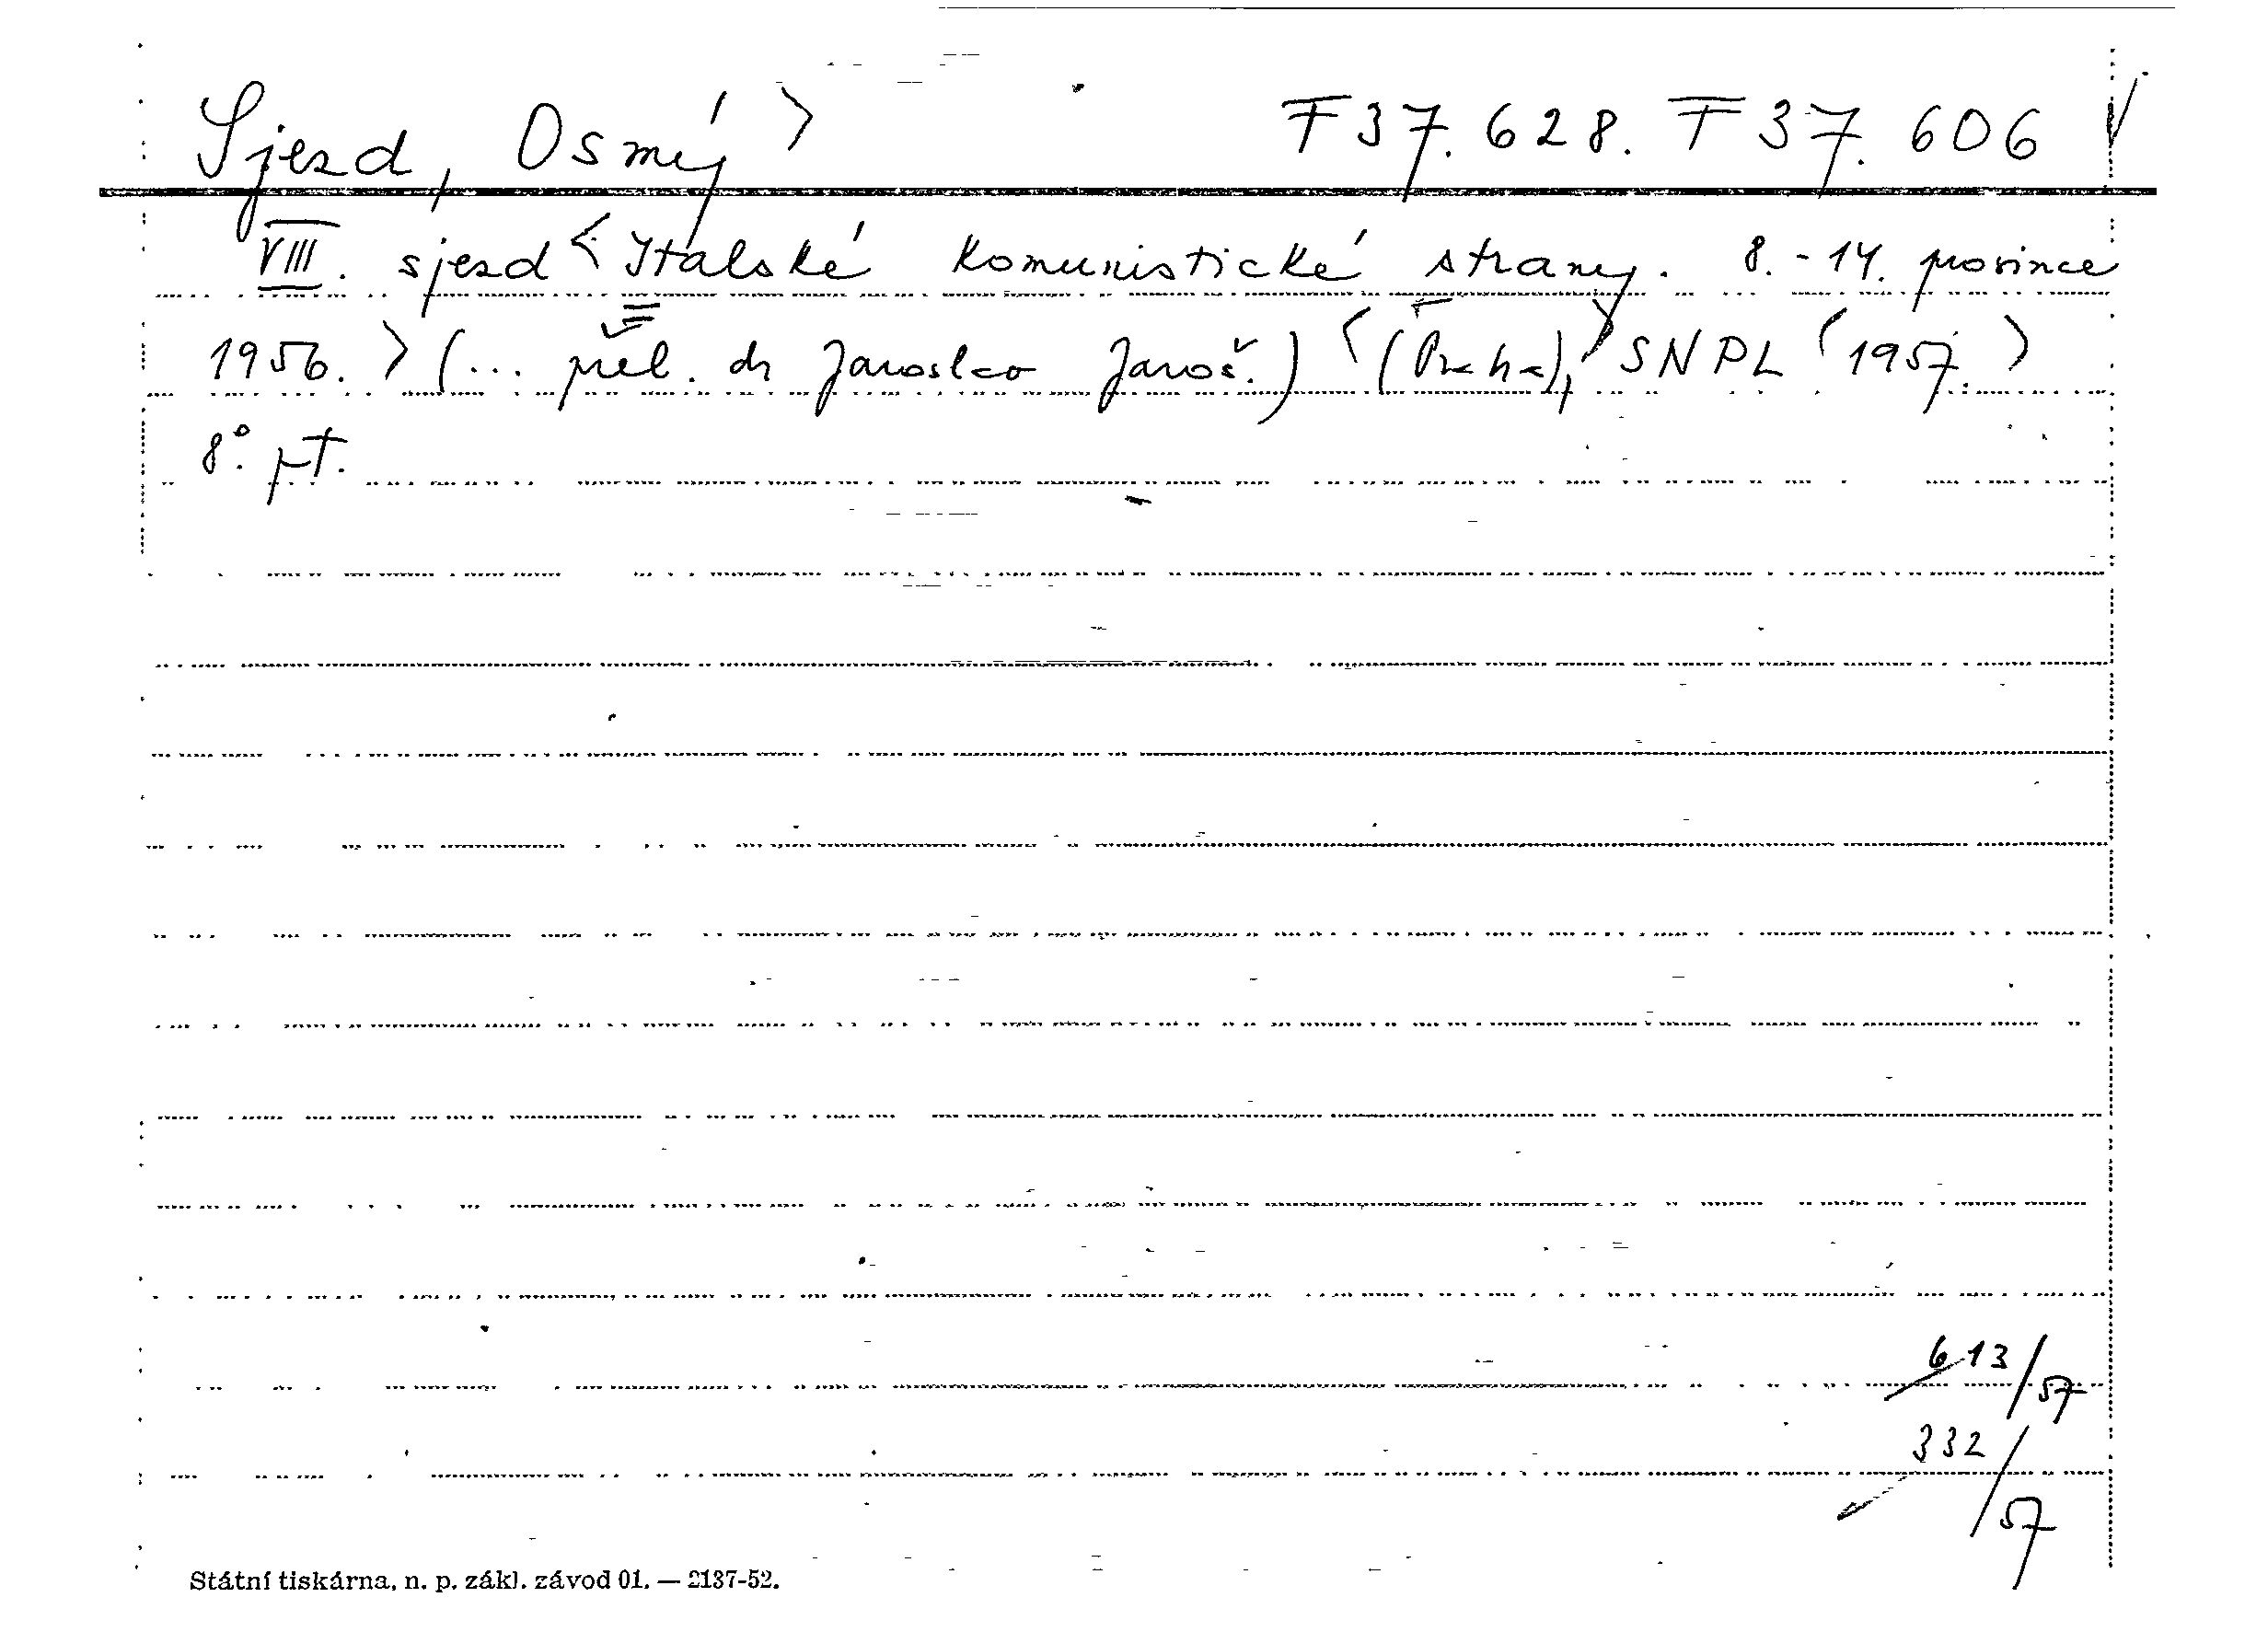 Sjezd, Osmý > F 37.628. F 37.606 V
VIII. sjezd < Italské Komunistické strany. 8.-14. prosince
1956. > (... přel. dr Jaroslav Jaroš.) < (Praha), > SNPL < 1957. >
8°. pt.
613/57
332/57
Státní tiskárna, n. p. zákl. závod 01. — 2137-52.